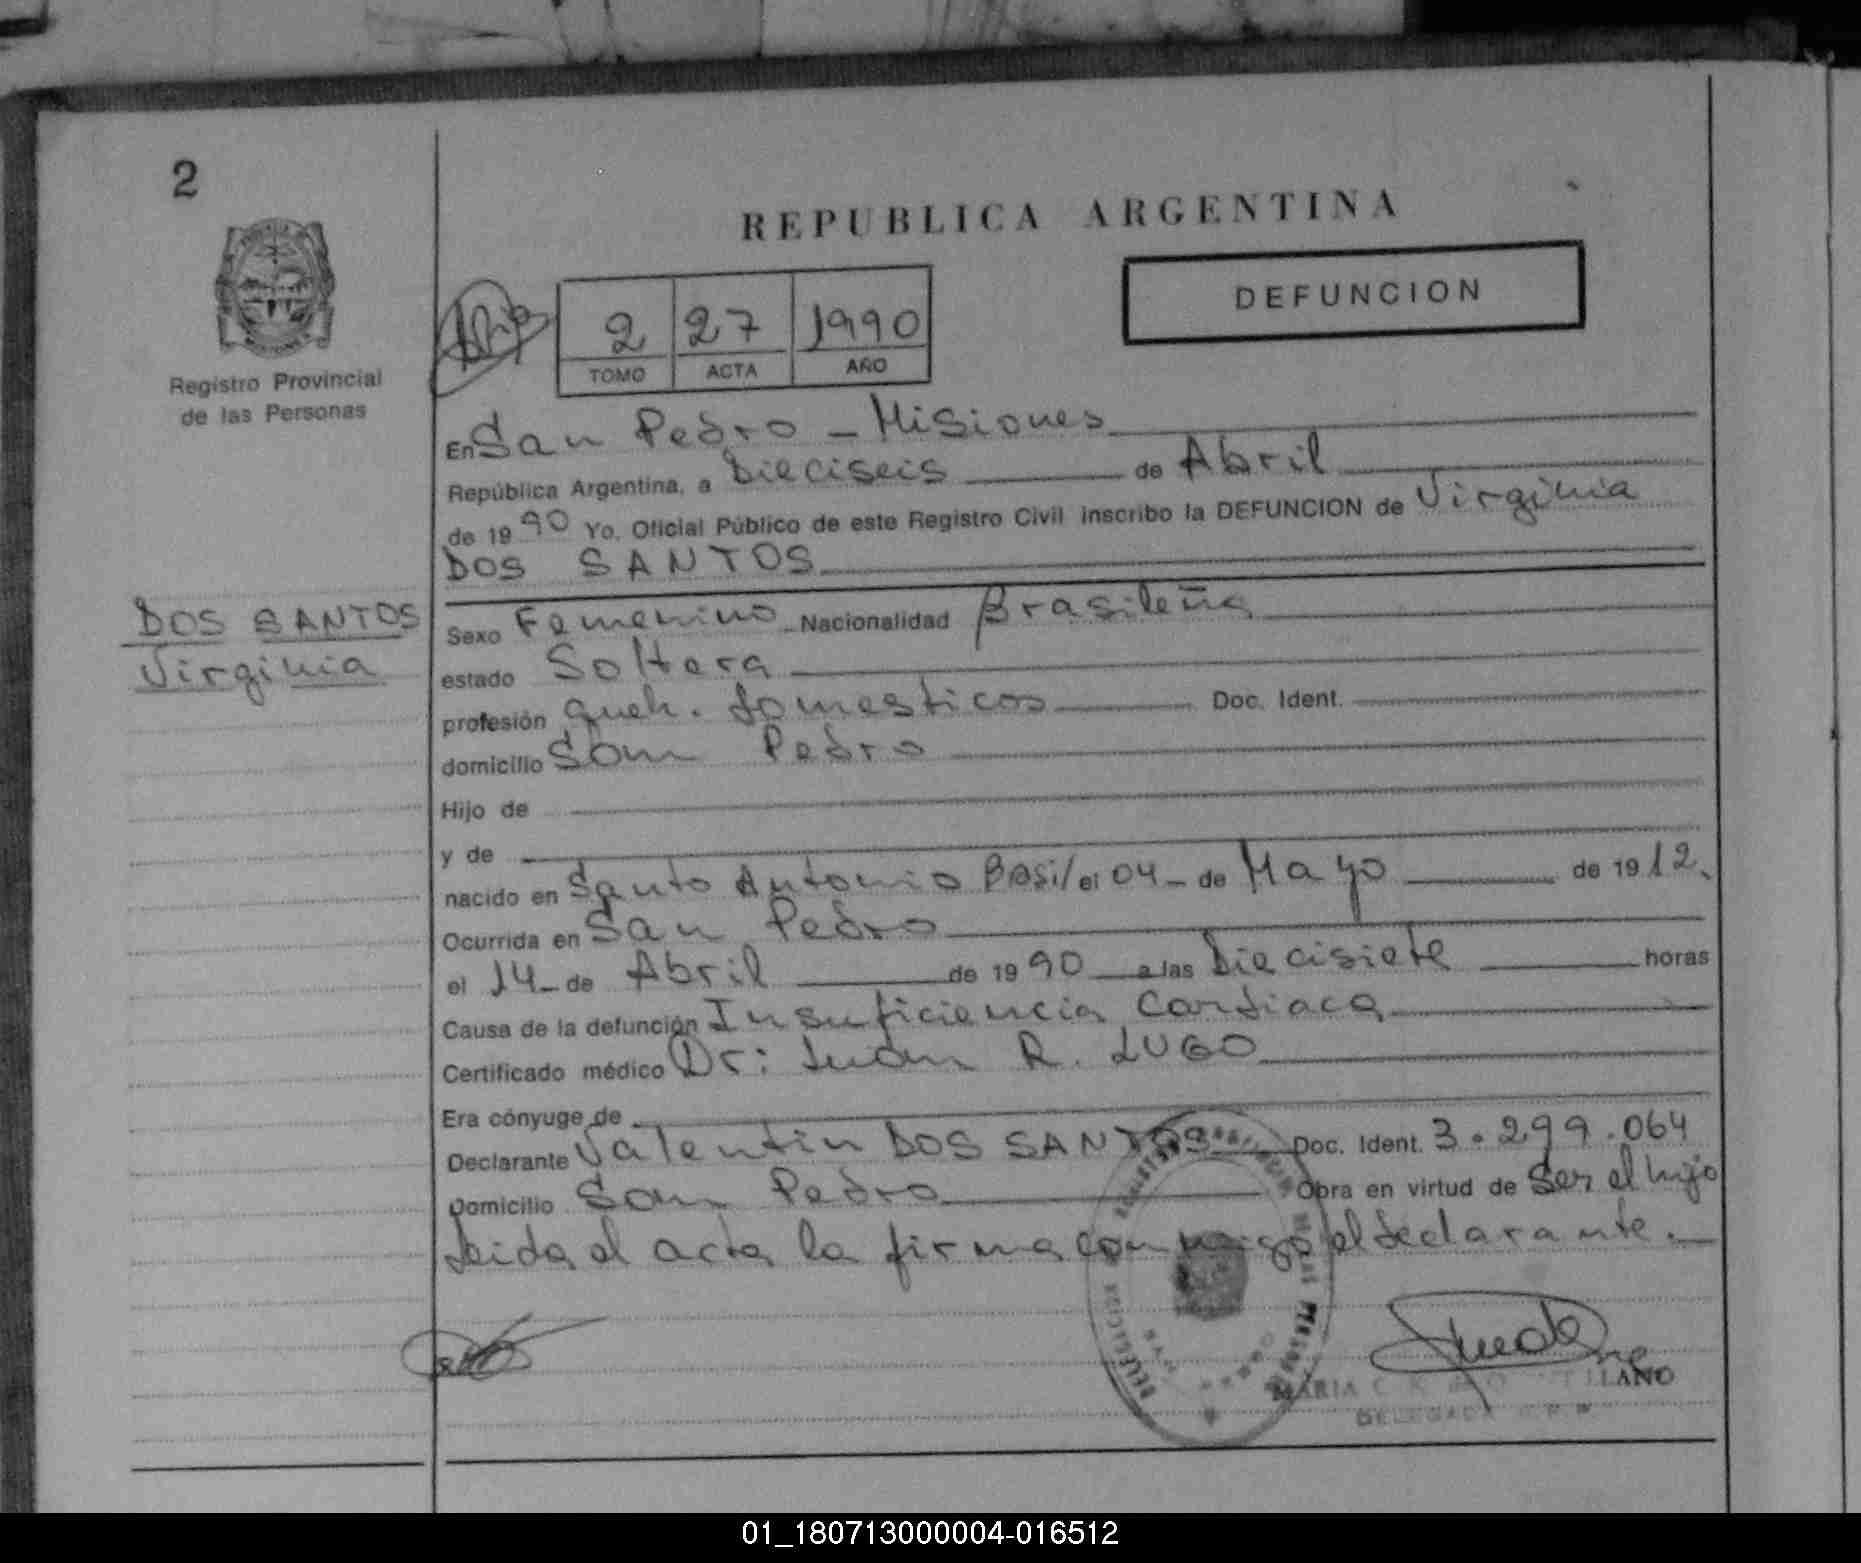 2
REPUBLICA ARGENTINA
DEFUNCION
2 27 1990
TOMO ACTA AÑO
Registro Provincial
de las Personas
En San Pedro - Misiones
República Argentina, a Dieciseis de Abril
de 1990 Yo, Oficial Público de este Registro Civil inscribo la DEFUNCION de Virginia
DOS SANTOS
DOS SANTOS
Virginia
Sexo Femenino Nacionalidad Brasileña
estado Soltera
profesión queh. domesticos Doc. Ident.
domicilio San Pedro
Hijo de
y de
nacido en Santo Antonio el 04 - de Mayo de 1912.
Ocurrida en San Pedro
el 14 - de Abril de 1990 a las Diecisiete horas
Causa de la defunción Insuficiencia Cardiaca
Certificado médico Dr: Juan R. LUGO
Era cónyuge de
Declarante Valentin DOS SANTOS Doc. Ident. 3.299.064
Domicilio San Pedro Obra en virtud de Ser el hijo
Leida el acta la firma conmigo el declarante.
MARIA C.
DELEGADA
01_180713000004-016512